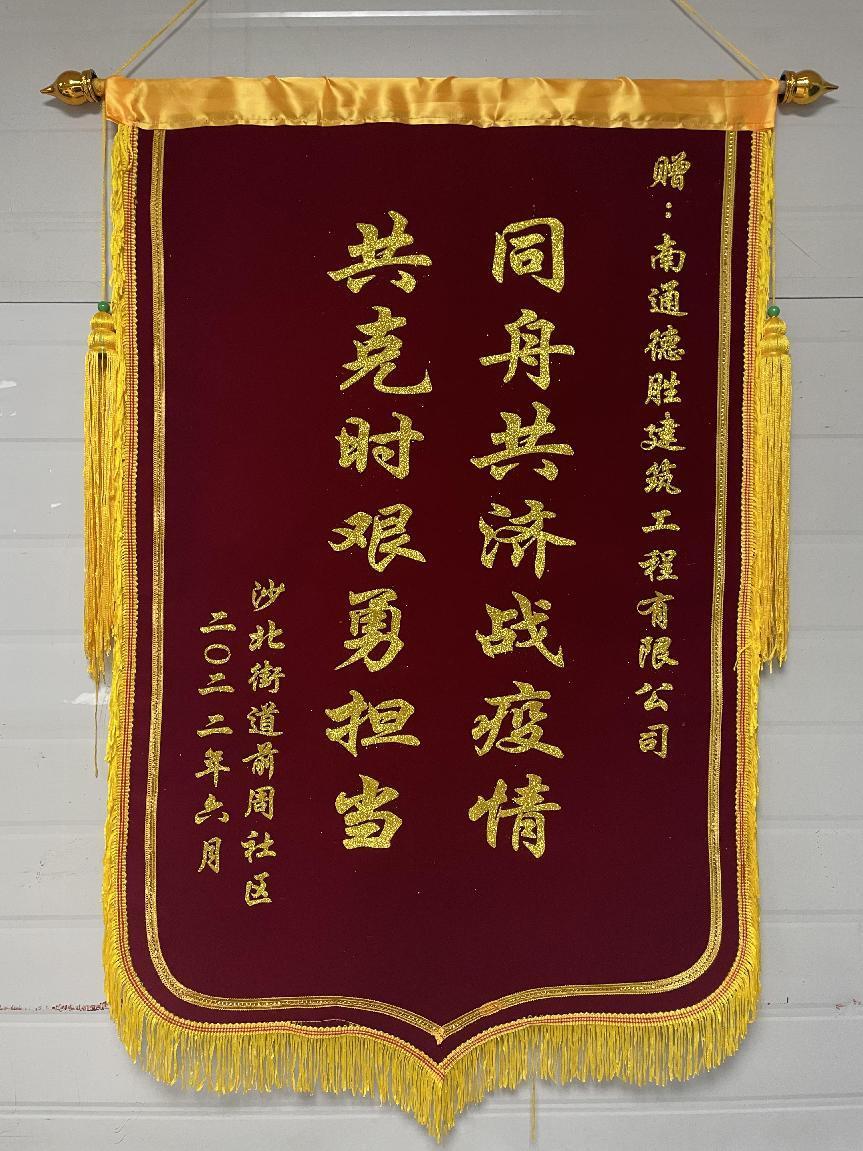 赠：南通德胜建筑工程有限公司
同舟共济战疫情
共克时艰勇担当
沙北街道前周社区
二〇二二年六月